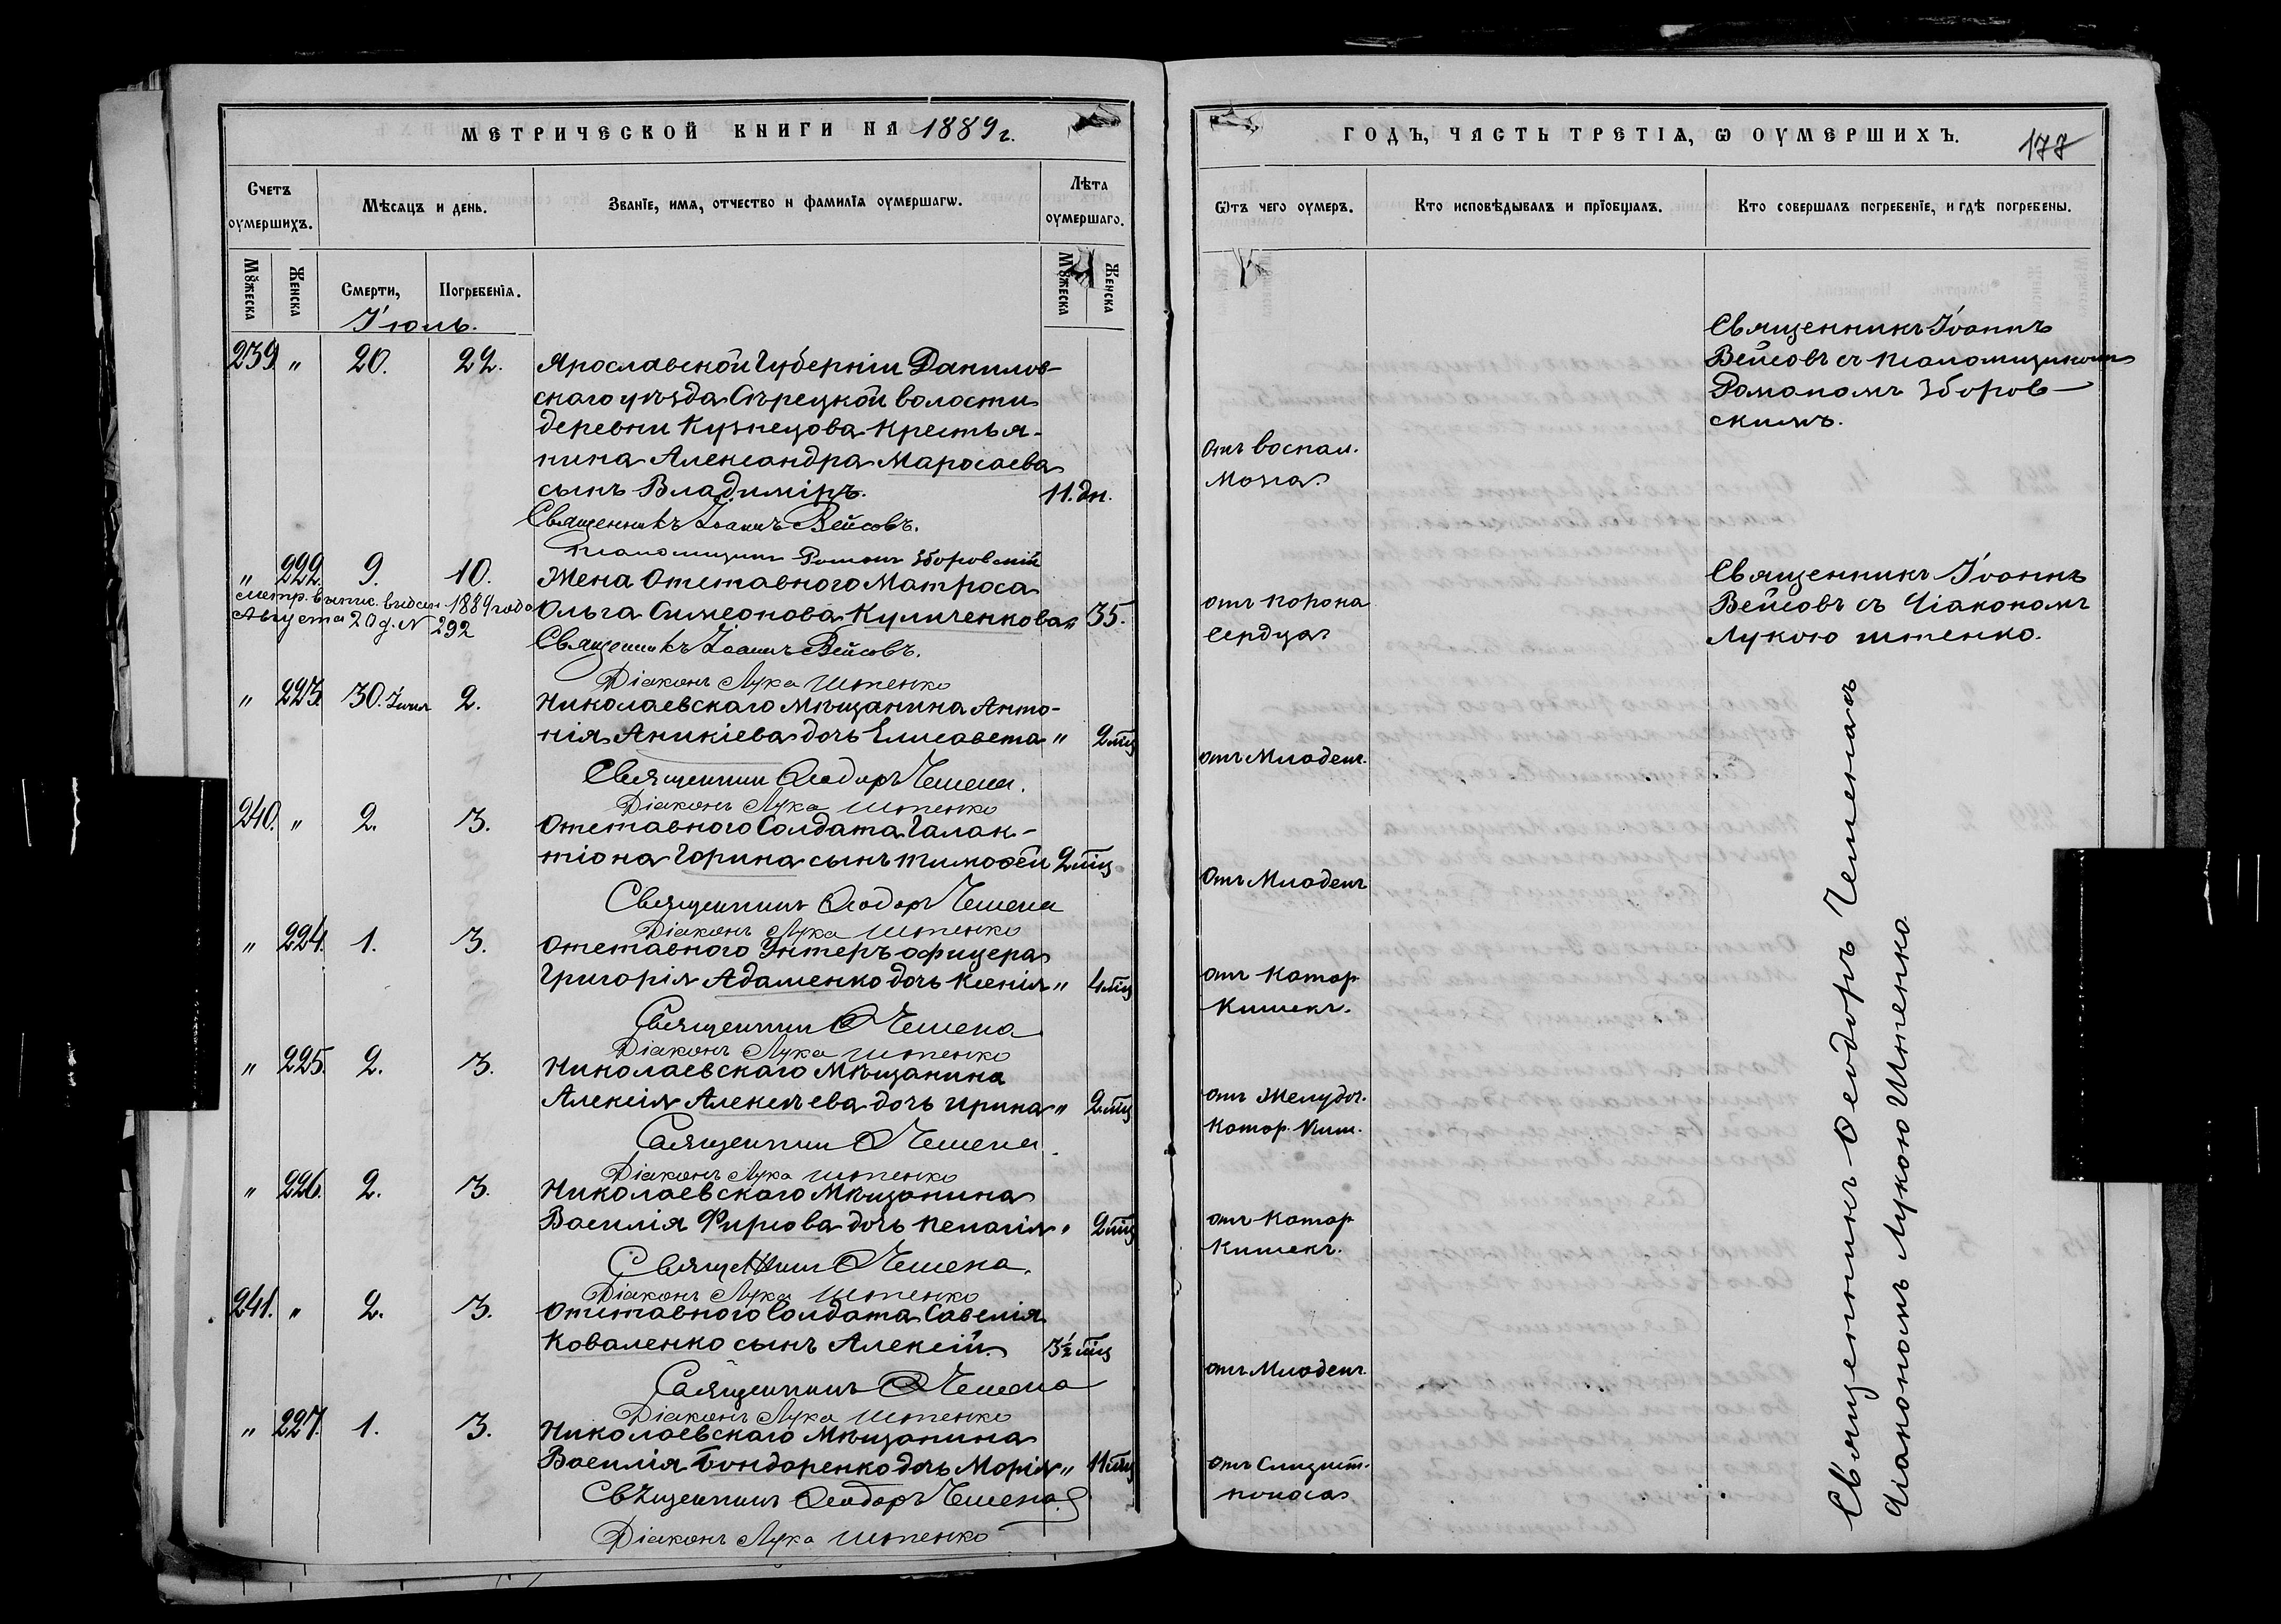 МЕТРИЧЕСКОЙ КНИГИ НА 1889 г.
Счетъ оумершихъ.
Мѣсяцъ и день.
Званіе, имя, отчество и фамилія оумершагѡ.
Лѣта оумершаго.
Мꙋжеска
Женска
Смерти,
Погребенія.
Мꙋжеска
Женска
Іюль.
239. " 20. 22. Ярославской Губерніи Данилов-
скаго уѣзда Сѣрецкой волости
деревни Кузнецова крестья-
нина Александра Маросаева
сынъ Владиміръ. 11. дн.
Священникъ Іоаннъ Вейсовъ.
Псаломщикъ Романъ Зборовскій
" 222. 9. 10. Жена Отставного Матроса
Ольга Симеонова Куличенкова " 35.
метр. выпис. видан 1889 года
Августа 20 д. N 292
Священникъ Іоаннъ Вейсовъ.
Діаконъ Лука Штенко
" 223. 30. Іюня 2. Николаевскаго Мѣщанина Анто-
нія Аникіева дочь Елисавета " 2 мц
Священникъ Ѳеодоръ Чемена.
Діаконъ Лука Штенко
240. " 2. 3. Отставного Солдата Галак-
тіона Горина сынъ Тимоѳей 2 мц
Священникъ Ѳеодоръ Чемена
Діаконъ Лука Штенко
" 224. 1. 3. Отставного Унтеръ офицера
Григорія Адаменко дочь Ксенія " 4 мц
Священникъ Ѳ Чемена
Діаконъ Лука Штенко
" 225. 2. 3. Николаевскаго Мѣщанина
Алексія Алексѣева дочь Ирина " 2 мц
Священникъ Ѳ Чемена.
Діаконъ Лука Штенко
" 226. 2. 3. Николаевскаго Мѣщанина
Василія Фирсова дочь Пелагія " 2 мц
Священникъ Ѳ Чемена.
Діаконъ Лука Штенко
241. " 2. 3. Отставного Солдата Савелія
Коваленко сынъ Алексій. 3½ мц
Священникъ Ѳ Чемена
Діаконъ Лука Штенко
" 227. 1. 3. Николаевскаго Мѣщанина
Василія Бондаренко дочь Марія " 11 мц
Священникъ Ѳеодоръ Чемена.
Діаконъ Лука Штенко
ГОДЪ, ЧАСТЬ ТРЕТІѦ, Ѡ ОУМЕРШИХЪ.
177
Ѿтъ чего оумеръ.
Кто исповѣдывалъ и пріобщалъ.
Кто совершалъ погребеніе, и гдѣ погребены.
Священникъ Іоаннъ
Вейсовъ съ псаломщикомъ
Романомъ Зборов-
скимъ.
Отъ воспал.
Мозга.
Священникъ Іоаннъ
Вейсовъ съ Діакономъ
Лукою Штенко.
отъ порока
сердца
отъ Младенч.
Отъ Младенч
отъ Катар
Кишекъ.
отъ Желудоч.
Катар. Киш.
отъ Катар
Кишекъ.
отъ Младенч.
отъ Слизист.
поноса
Священникъ Ѳеодоръ Чеменахъ
Діакономъ Лукою Штенко